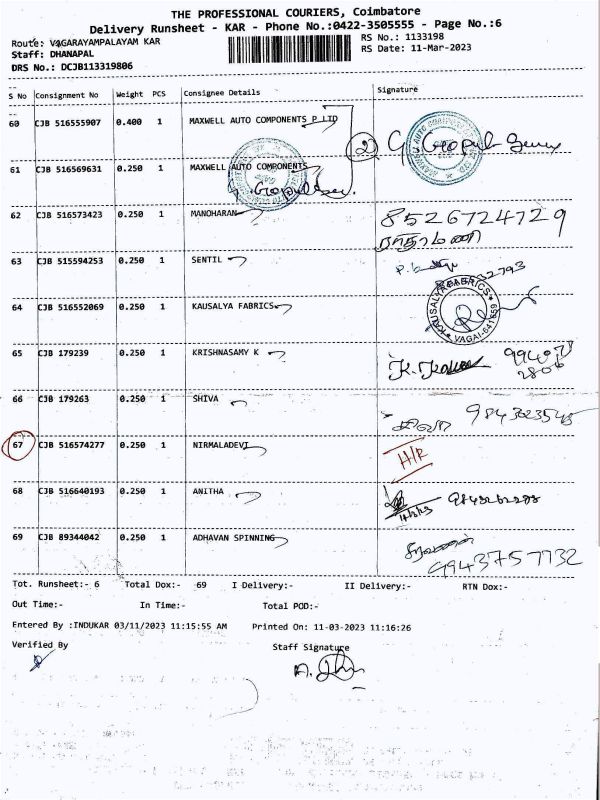 THE PROFESSIONAL COURIERS, Coimbatore
Delivery Runsheet - KAR - Phone No.:0422-3505555 - Page No.:6
Route: VAGARAYAMPALAYAM KAR
RS No.: 1133198
Staff: DHANAPAL
RS Date: 11-Mar-2023
DRS No.: DCJB113319806
S No Consignment No Weight PCS Consignee Details Signature
60 CJB 516555907 0.400 1 MAXWELL AUTO COMPONENTS P LTD
61 CJB 516569631 0.250 1 MAXWELL AUTO COMPONENTS
62 CJB 516573423 0.250 1 MANOHARAN 8526724729
63 CJB 515594253 0.250 1 SENTIL
64 CJB 516552069 0.250 1 KAUSALYA FABRICS
KAUSALYA FABRICS
VAGAI-641659
65 CJB 179239 0.250 1 KRISHNASAMY K
66 CJB 179263 0.250 1 SHIVA
67 CJB 516574277 0.250 1 NIRMALADEVI H/R
68 CJB 516640193 0.250 1 ANITHA
69 CJB 89344042 0.250 1 ADHAVAN SPINNING
9943757732
Tot. Runsheet:- 6 Total Dox:- 69 I Delivery:- II Delivery:- RTN Dox:-
Out Time:- In Time:- Total POD:-
Entered By :INDUKAR 03/11/2023 11:15:55 AM Printed On: 11-03-2023 11:16:26
Verified By Staff Signature